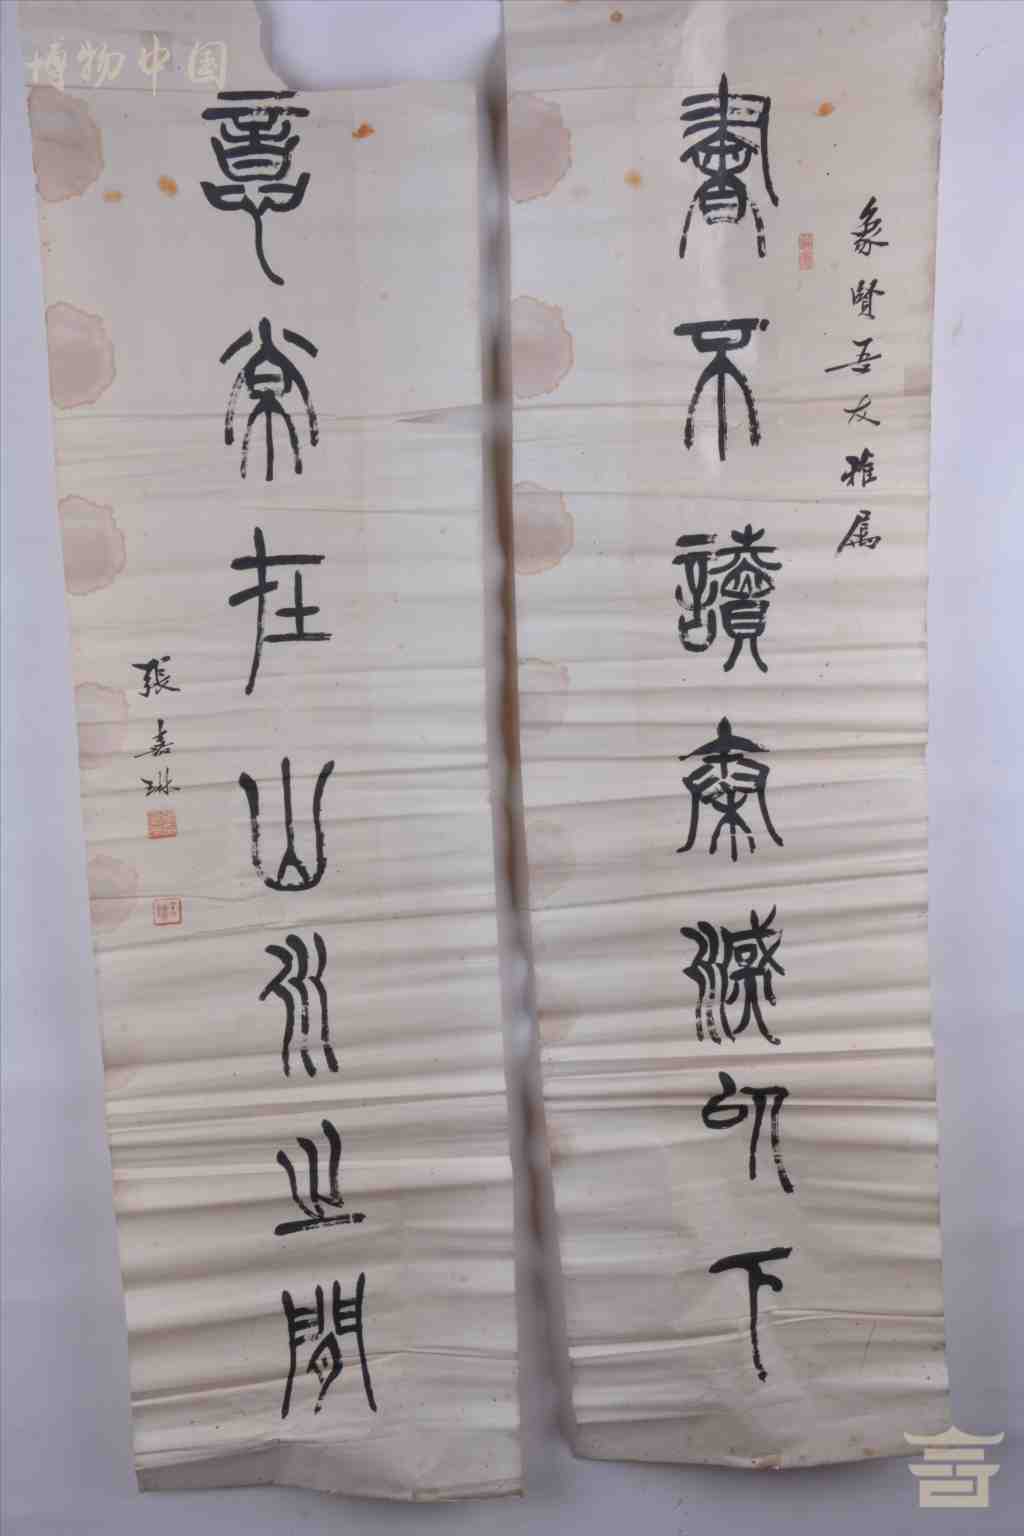 象賢吾友雅屬
書不讀秦漢以下
意常在山水之間
張嘉琳
博物中国